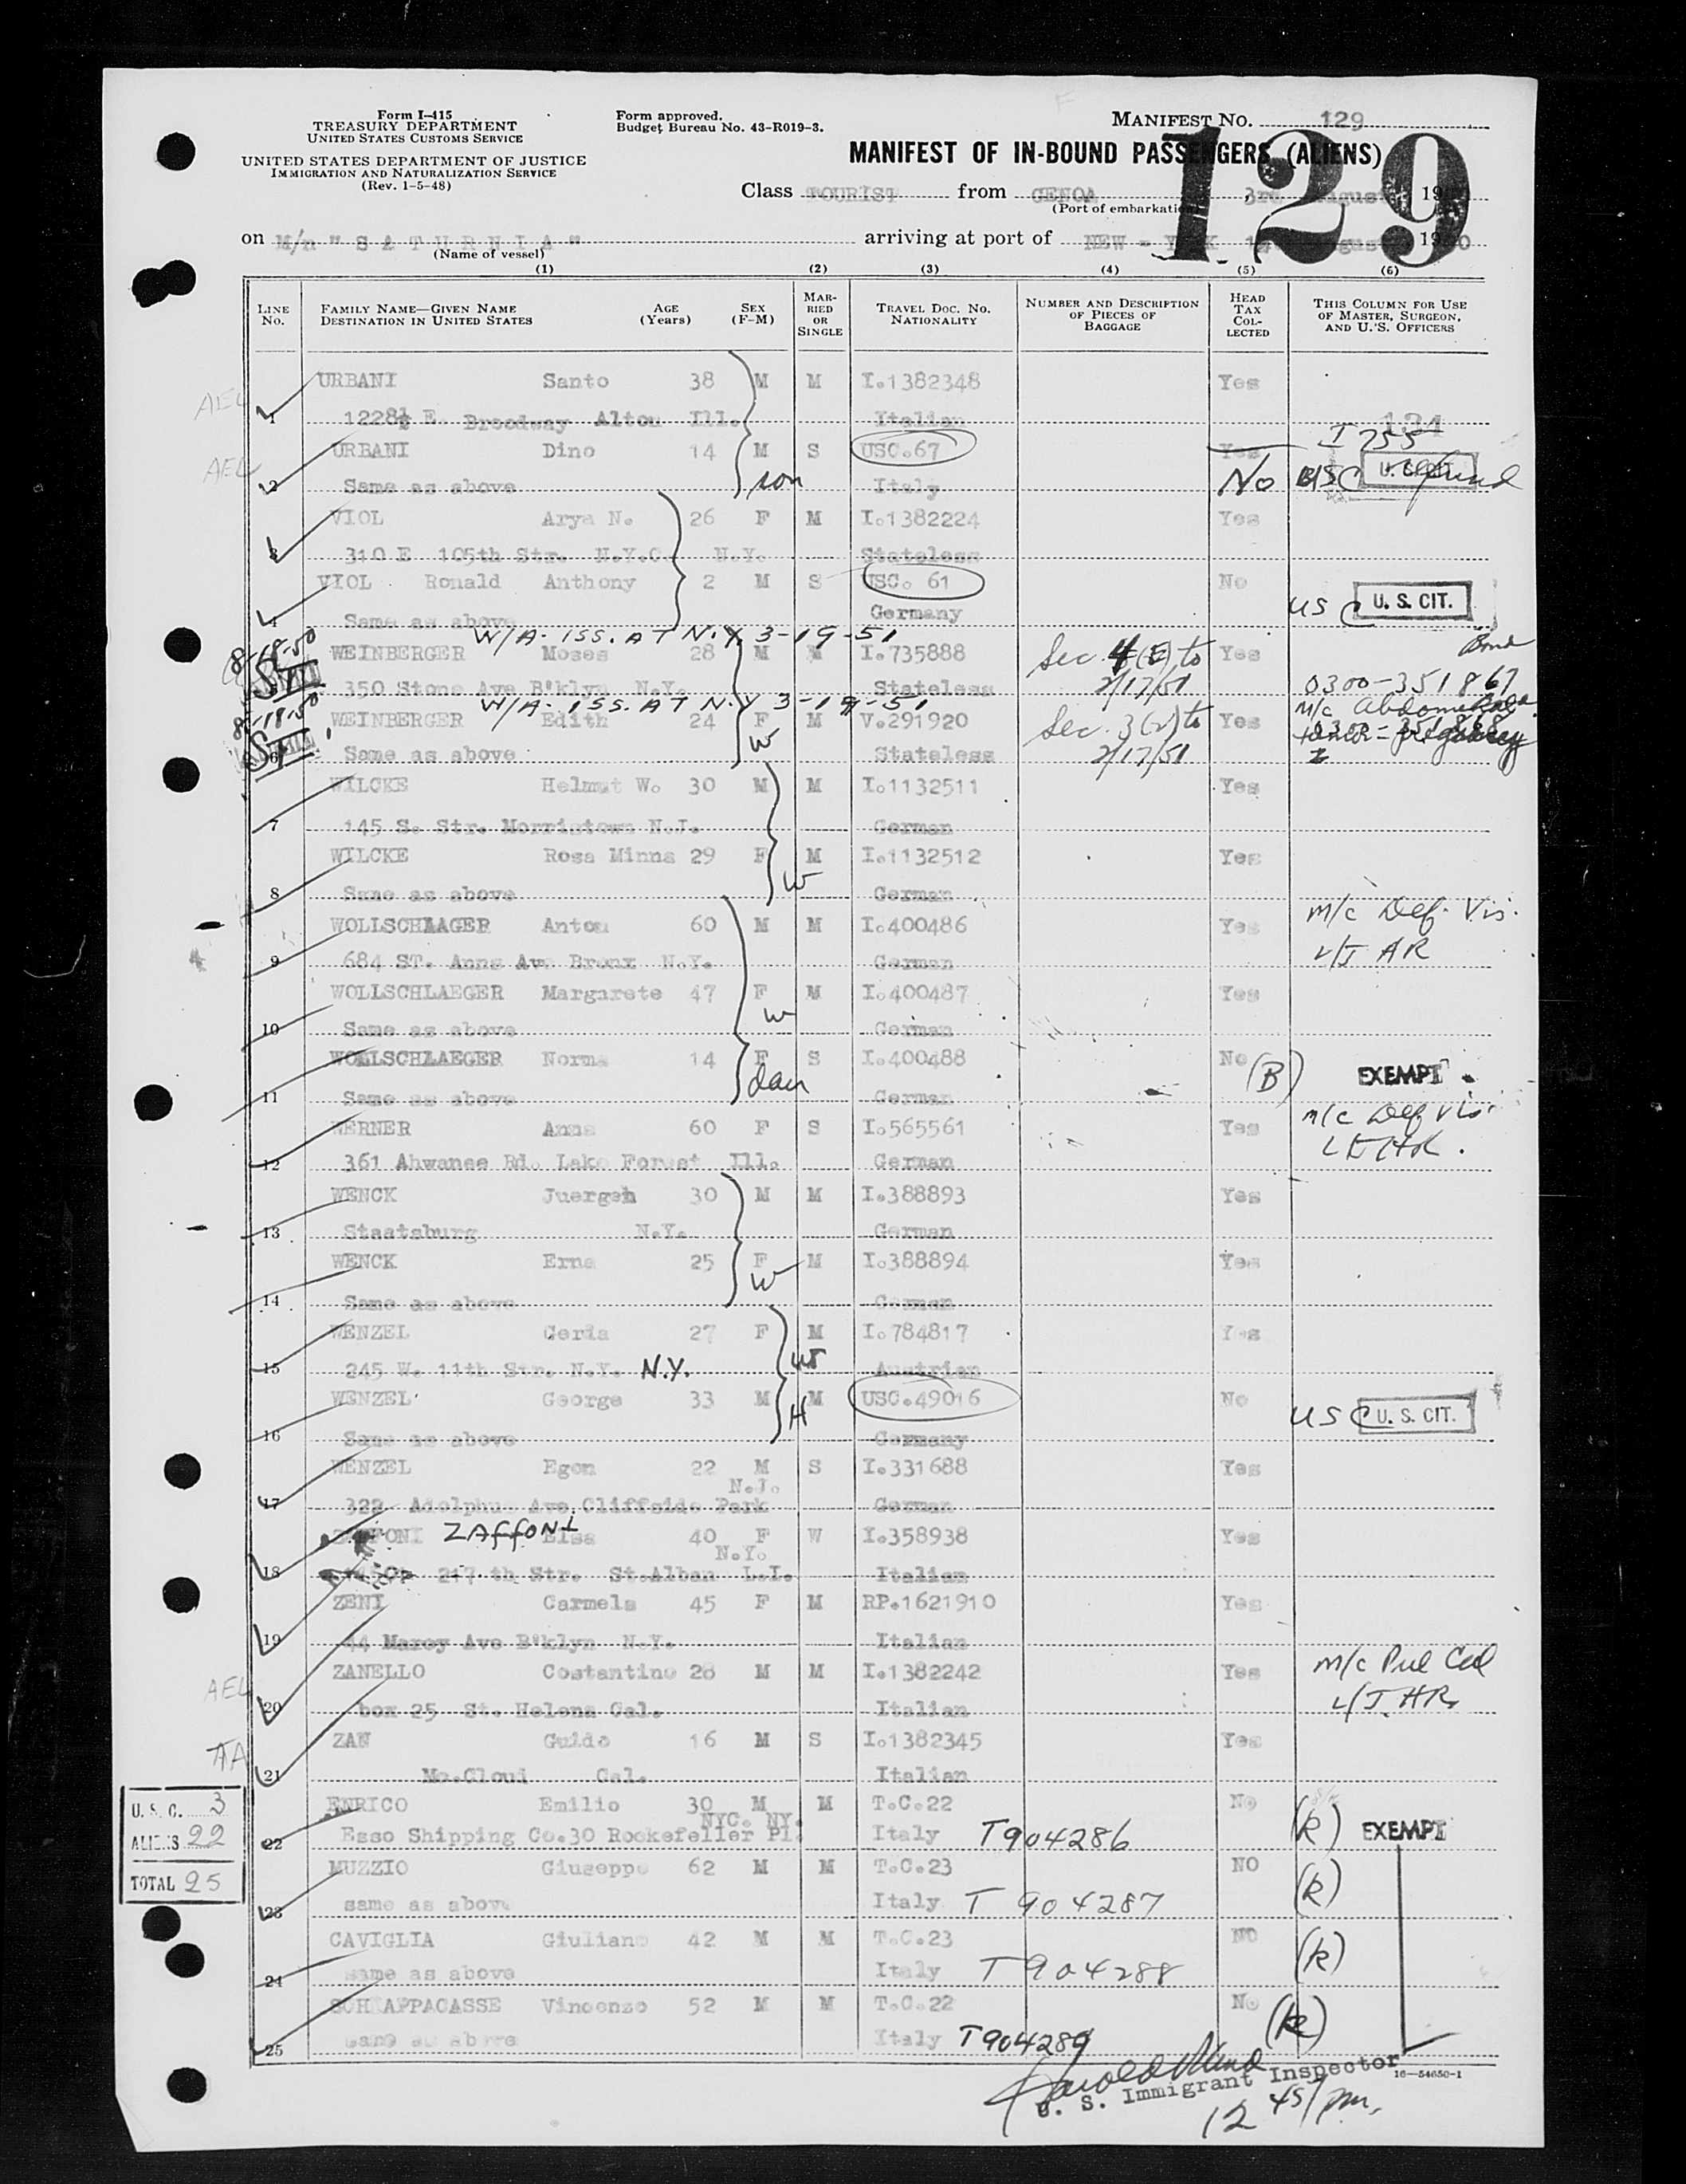 Form I-415
TREASURY DEPARTMENT
UNITED STATES CUSTOMS SERVICE
UNITED STATES DEPARTMENT OF JUSTICE
IMMIGRATION AND NATURALIZATION SERVICE
(Rev. 1-5-48)
Form approved.
Budget Bureau No. 43-R019-3.
MANIFEST NO. 129
129
MANIFEST OF IN-BOUND PASSENGERS (ALIENS)
Class TOURIST from GENOA, 3rd August 19
(Port of embarkation)
on M/n "SATURNIA" arriving at port of NEW-YORK
(Name of vessel)
(1) (2) (3) (4) (5) (6)
LINE NO. FAMILY NAME—GIVEN NAME DESTINATION IN UNITED STATES AGE (Years) SEX (F-M) MARRIED OR SINGLE TRAVEL DOC. NO. NATIONALITY NUMBER AND DESCRIPTION OF PIECES OF BAGGAGE HEAD TAX COLLECTED THIS COLUMN FOR USE OF MASTER, SURGEON, AND U. S. OFFICERS
URBANI Santo 38 M M I.1382348 Yes
1 1228½ E. Broodway Alton Ill. Italian
URBANI Dino 14 M S USC.67 Yes I 255
2 Same as above son Italy No USC U. S. CIT.
VIOL Arya N. 26 F M I.1382224 Yes
3 310 E 105th Str. N.Y.C. N.Y. Stateless
VIOL Ronald Anthony 2 M S USC. 61 No
4 Same as above Germany USC U. S. CIT.
8-18-50 W/A- ISS. AT N.Y 3-19-51 Bond
WEINBERGER Moses 28 M M I.735888 Sec. 4(E) to Yes
5 350 Stone Ave B'klyn N.Y. Stateless 2/17/51 0300-351867
8-18-50 W/A- ISS. AT N.Y 3-19-51 m/c Abdominal
WEINBERGER Edith 24 F M V.291920 Sec. 3(2) to Yes 0300-351868
6 Same as above W Stateless 2/17/51
WILCKE Helmut W. 30 M M I.1132511 Yes
7 145 S. Str. Morristown N.J. German
WILCKE Rosa Minna 29 F M I.1132512 Yes
8 Same as above W German
WOLLSCHLAGER Anton 60 M M I.400486 Yes m/c Def. Vis.
9 684 ST. Anns Av. Bronx N.Y. German
WOLLSCHLAEGER Margarete 47 F M I.400487 Yes
10 Same as above W German
WOLLSCHLAEGER Norma 14 F S I.400488 No (B) EXEMPT
11 Same as above dau German
WERNER Anna 60 F S I.565561 Yes m/c Def Vis.
12 361 Ahwanee Rd. Lake Forest Ill. German
WENCK Juergen 30 M M I.388893 Yes
13 Staatsburg N.Y. German
WENCK Erna 25 F M I.388894 Yes
14 Same as above W German
WENZEL Gerda 27 F M I.784817 Yes
15 245 W. 11th Str. N.Y. N.Y. W Austrian
WENZEL George 33 M M USC.49016 No
16 Same as above H Germany USC U. S. CIT.
WENZEL Egon 22 M S I.331688 Yes
N.J.
17 322 Adolphus Ave Cliffside Park German
ZAFFONI Elsa 40 F W I.358938 Yes
N.Y.
18 217 th Str. St.Alban L.I. Italian
ZENI Carmela 45 F M RP.1621910 Yes
19 44 Marcy Ave B'klyn N.Y. Italian
ZANELLO Costantino 28 M M I.1382242 Yes
20 box 25 St. Helena Cal. Italian
ZAN Guido 16 M S I.1382345 Yes
21 Mc.Cloud Cal. Italian
ENRICO Emilio 30 M M T.C.22 No (k) EXEMPT
NYC. NY.
22 Esso Shipping Co.30 Rockefeller Pl. Italy T904286
MUZZIO Giuseppe 62 M M T.C.23 NO (k)
23 same as above Italy T 904287
CAVIGLIA Giuliano 42 M M T.C.23 NO (k)
24 same as above Italy T904288
SCHIAPPACASSE Vincenzo 52 M M T.C.22 No (k)
25 same as above Italy T904289
U. S. C. 3
ALIENS 22
TOTAL 25
U. S. Immigrant Inspector
16—54650-1
12 45/pm.